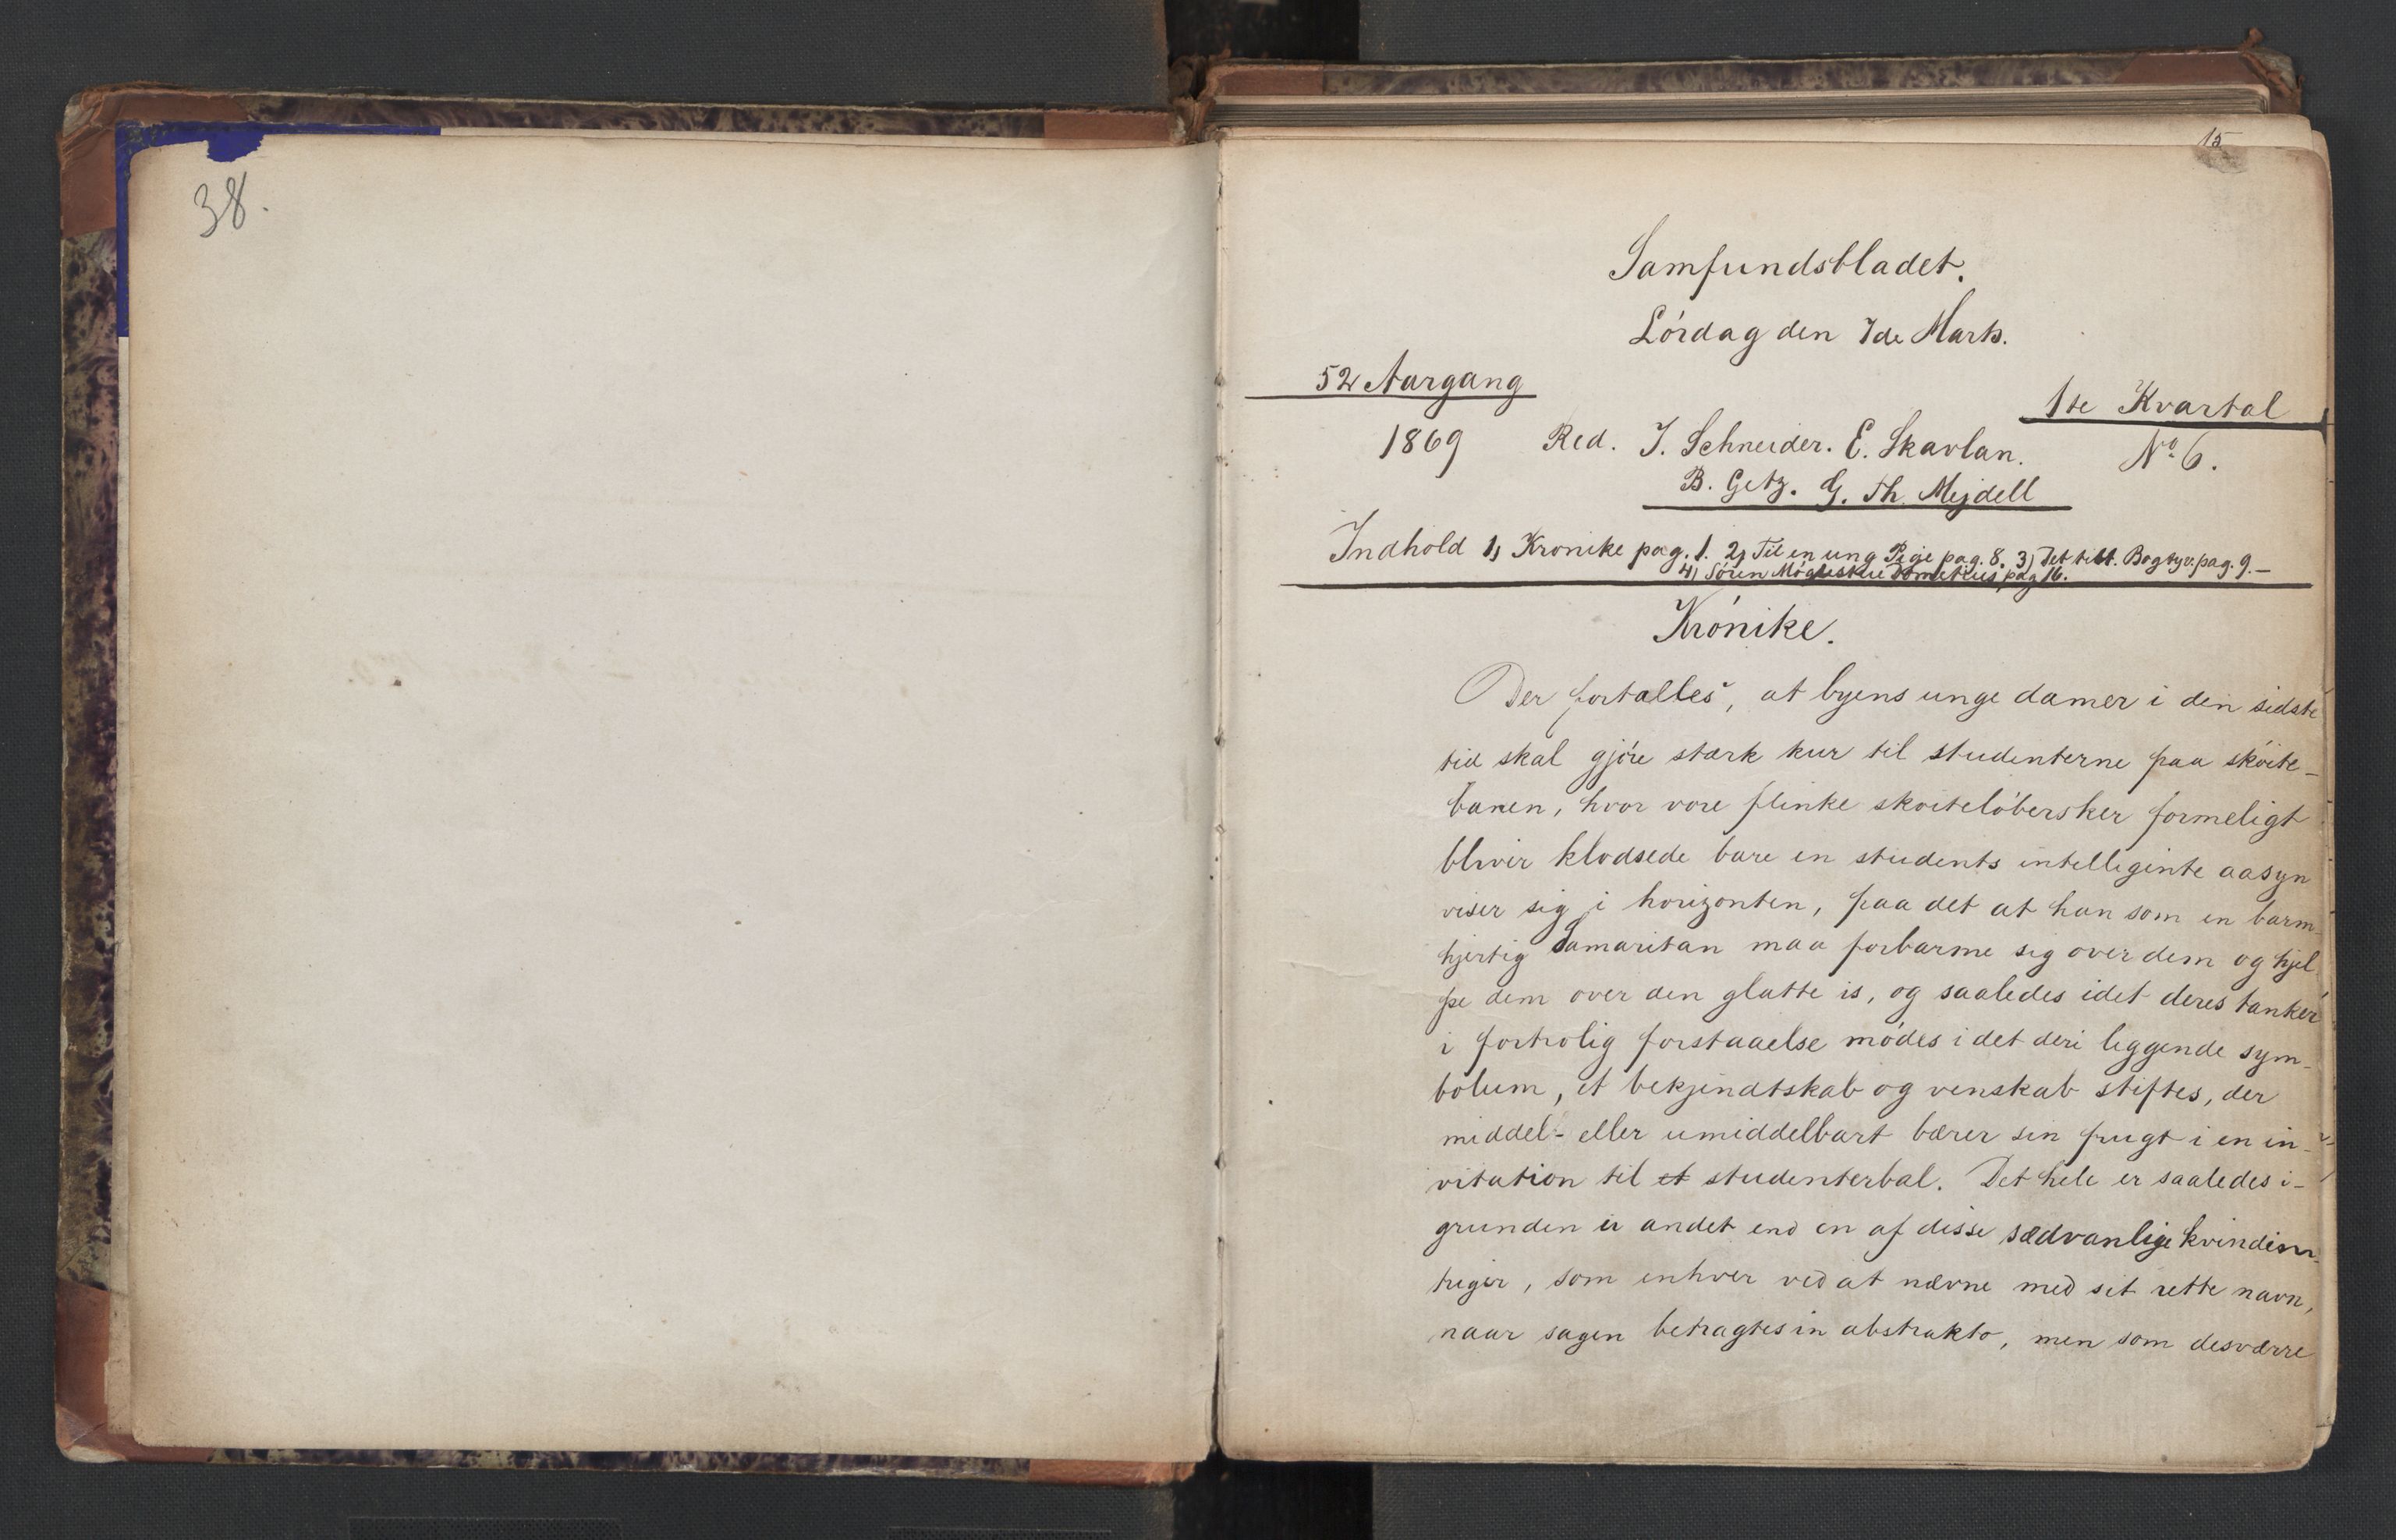 38.
15
Samfundsbladet.
Lördag den 7de Marts.
52 Aargang
1ste Kvartal
1869 Red. J. Schneider. E. Skavlan. No 6.
B. Getz. G. Th. Mejdell
Indhold 1) Kronike pag. 1. 2) Til en ung Pige pag. 8. 3) Det Bogtyv. pag. 9.—
4) Sören pag 16.
Krönike.
Der fortælles, at byens unge damer i den sidste
tid skal gjöre stærk kur til studenterne paa sköite-
banen, hvor vore flinke skoitelöbersker formeligt
bliver klodsede bare en students intelligente aasyn
viser sig i horizonten, paa det at han som en barm-
hjertig Samaritan maa forbarme sig over dem og hjel-
pe dem over den glatte is, og saaledes idet deres tanker
i fortrolig forstaaelse mödes i det deri liggende sym-
bolum, et bekjendtskab og venskab stiftes, der
middel- eller umiddelbart bærer sin frugt i en in-
vitation til et studenterbal. Det hele er saaledes i-
grunden ei andet end en af disse sædvanlige kvindein-
triger, som enhver ved at nævne med sit rette navn,
naar sagen betragtes in abstrakto, men som desværre